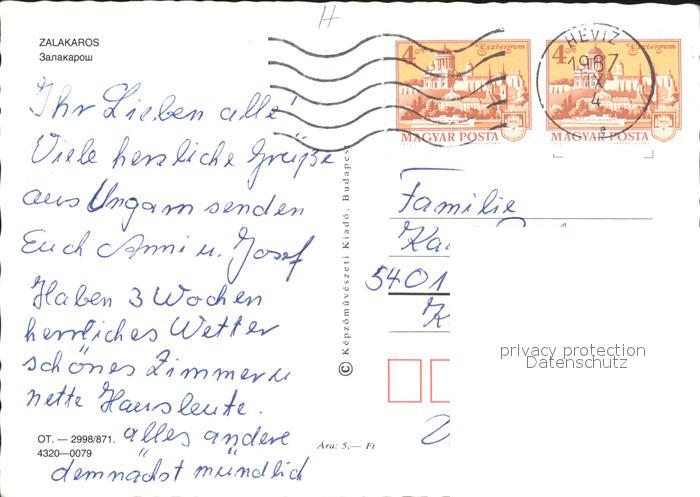 H
ZALAKAROS
Залакарош
Ihr Lieben alle!
Viele herzliche Grüße
aus Ungarn senden
Euch Anni u. Josef
Haben 3 Wochen
herrliches Wetter
schönes Zimmer u
nette Hausleute.
alles andere
demnächst mündlich
OT. — 2998/871.
4320—0079
© Képzőművészeti Kiadó, Budapest
Ára: 5,— Ft
4 Ft Esztergom
MAGYAR POSTA
4 Ft Esztergom
MAGYAR POSTA
HÉVÍZ
1987
IX
4
Familie
Ka
5401
K
privacy protection
Datenschutz